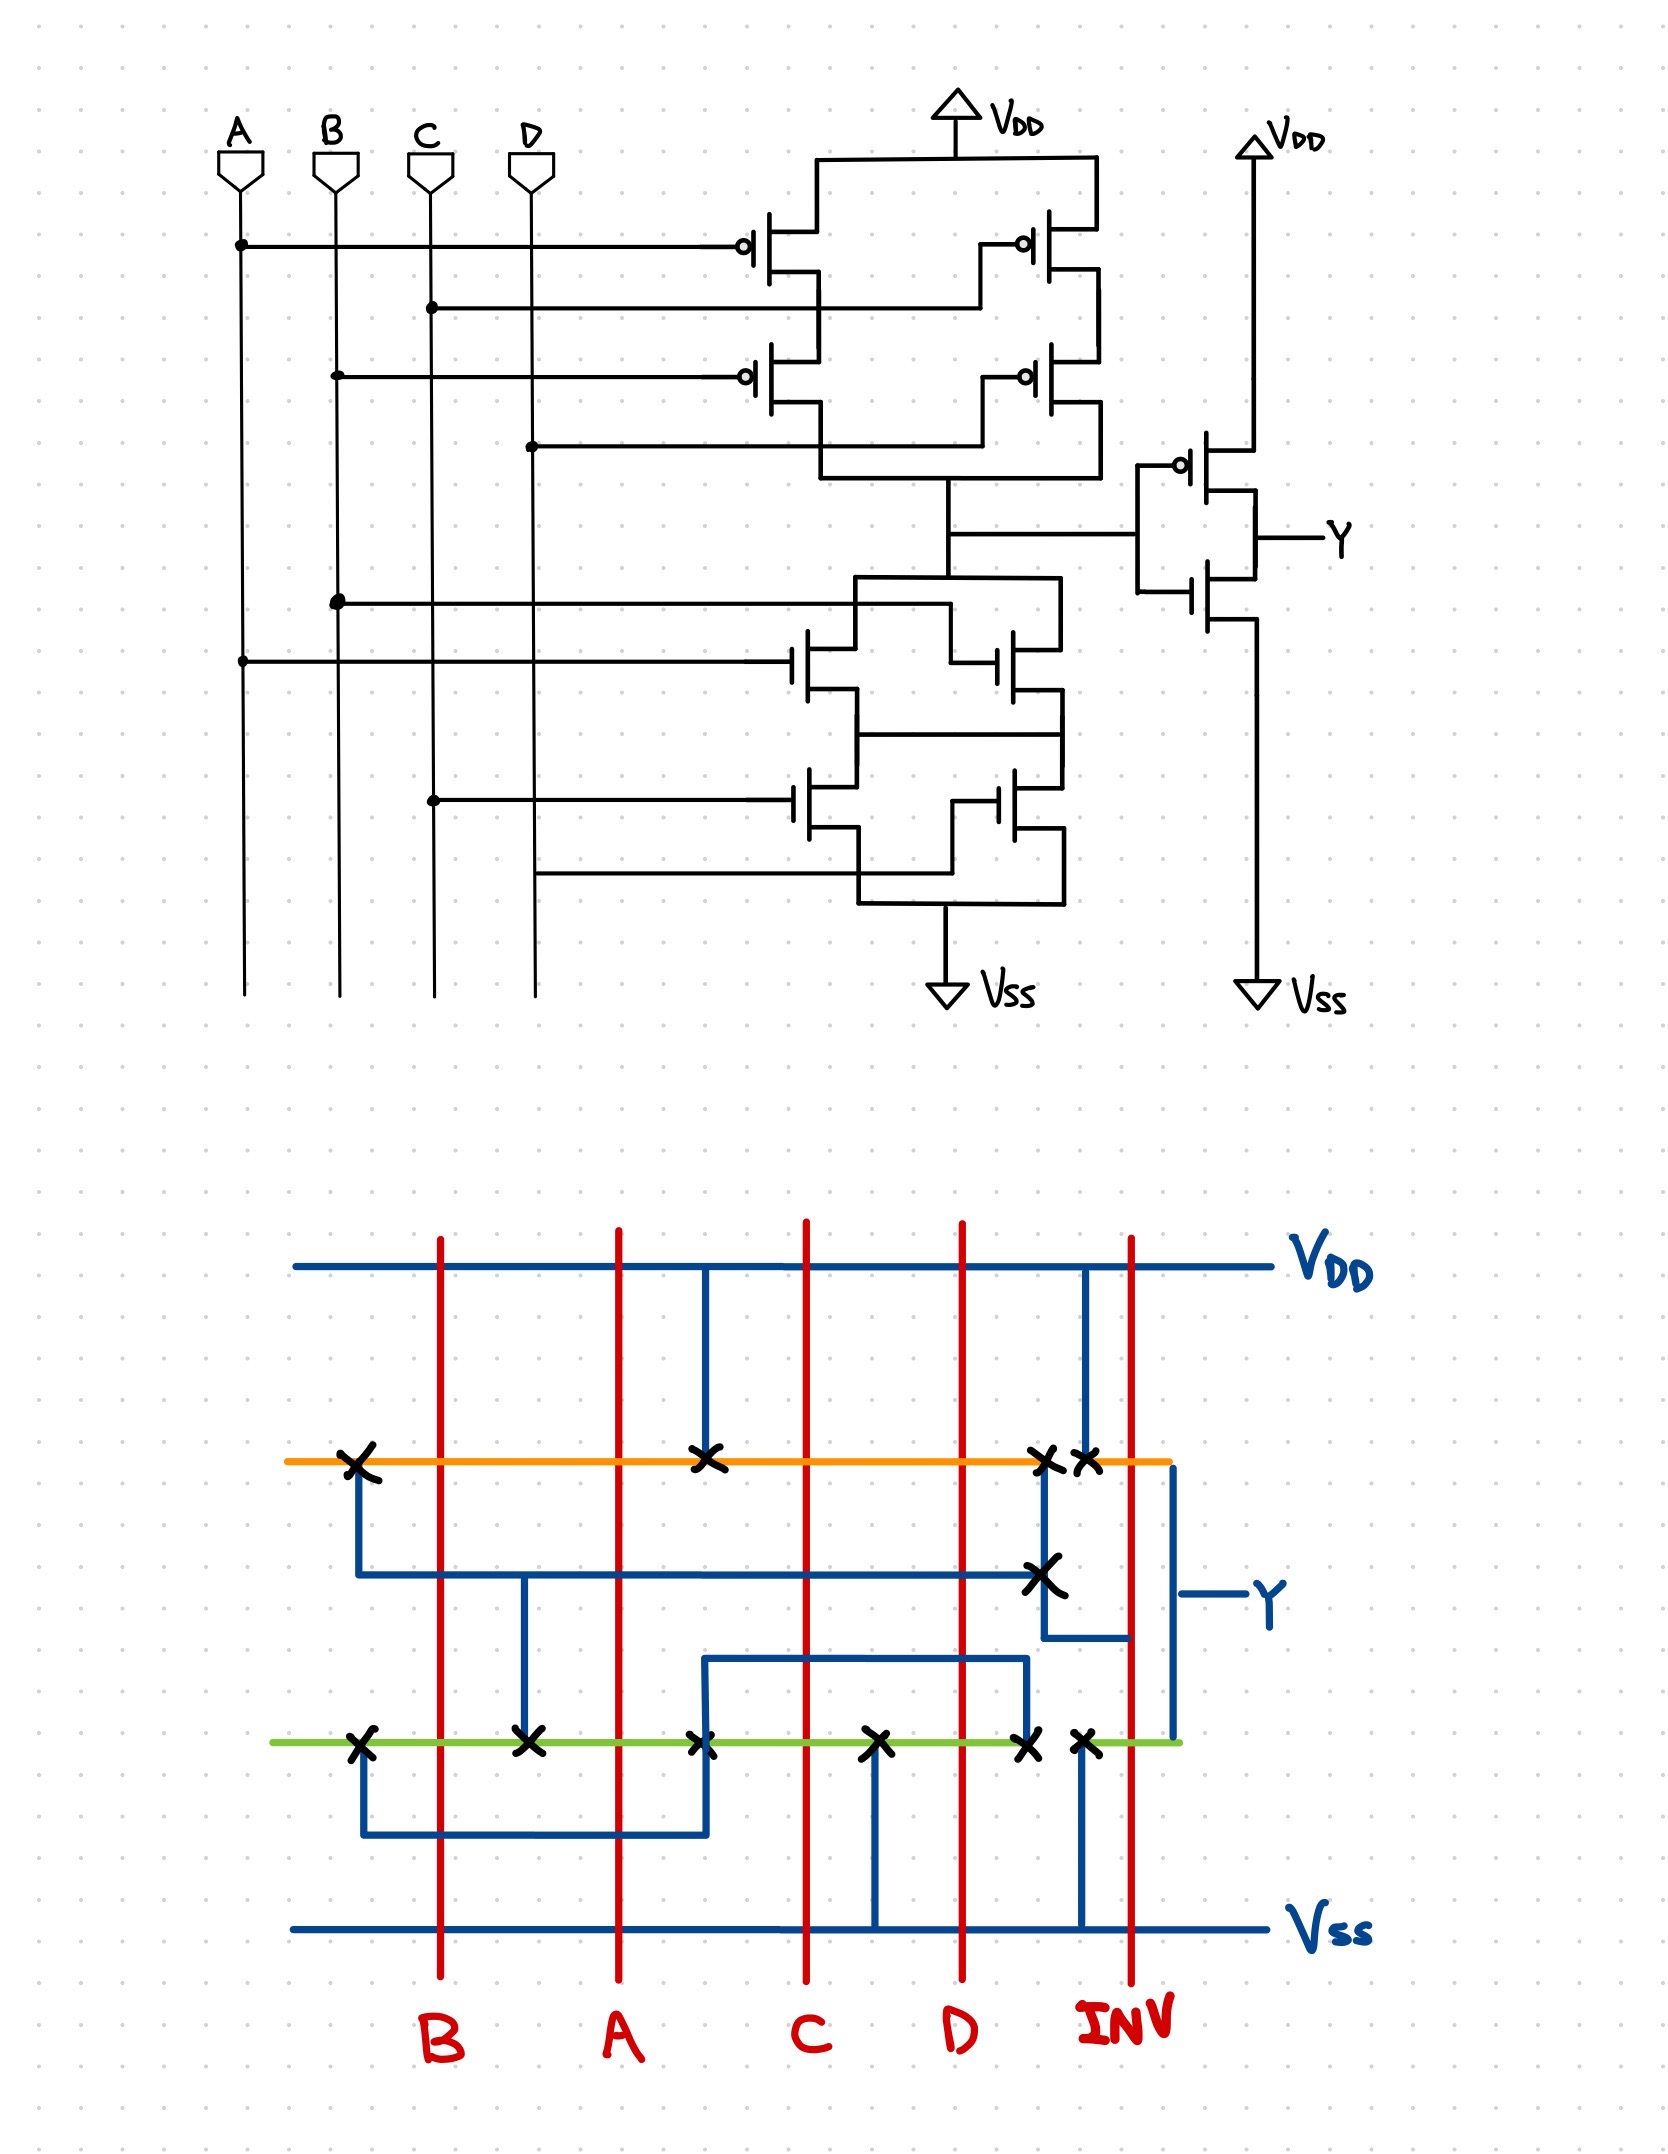 A B C D
VDD
VDD
Y
VSS
VSS
VDD
Y
VSS
B A C D INV